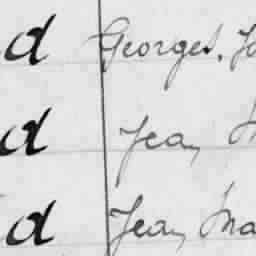 d Georges, J
d Jean
d Jean, Ma